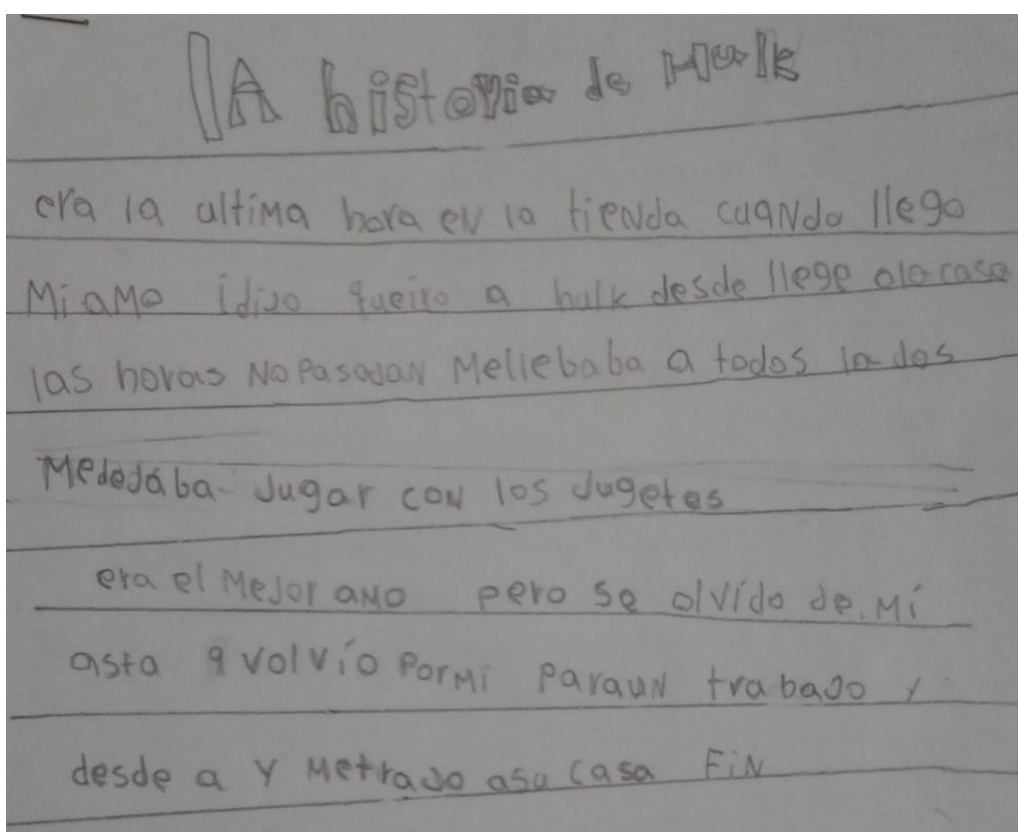 lA historia de Hulk
era la altima hora en la tienda cuando llego
Mi amo i dijo queiro a hulk desde llege ala casa
las horas No pasaJan Mellebaba a todos la dos
MedeJába Jugar con los Jugetes
era el MeJor aMo pero se olvído de Mí
asta q volvío PorMi Paraun trabaJo y
desde a y MetraJo asu casa FiN